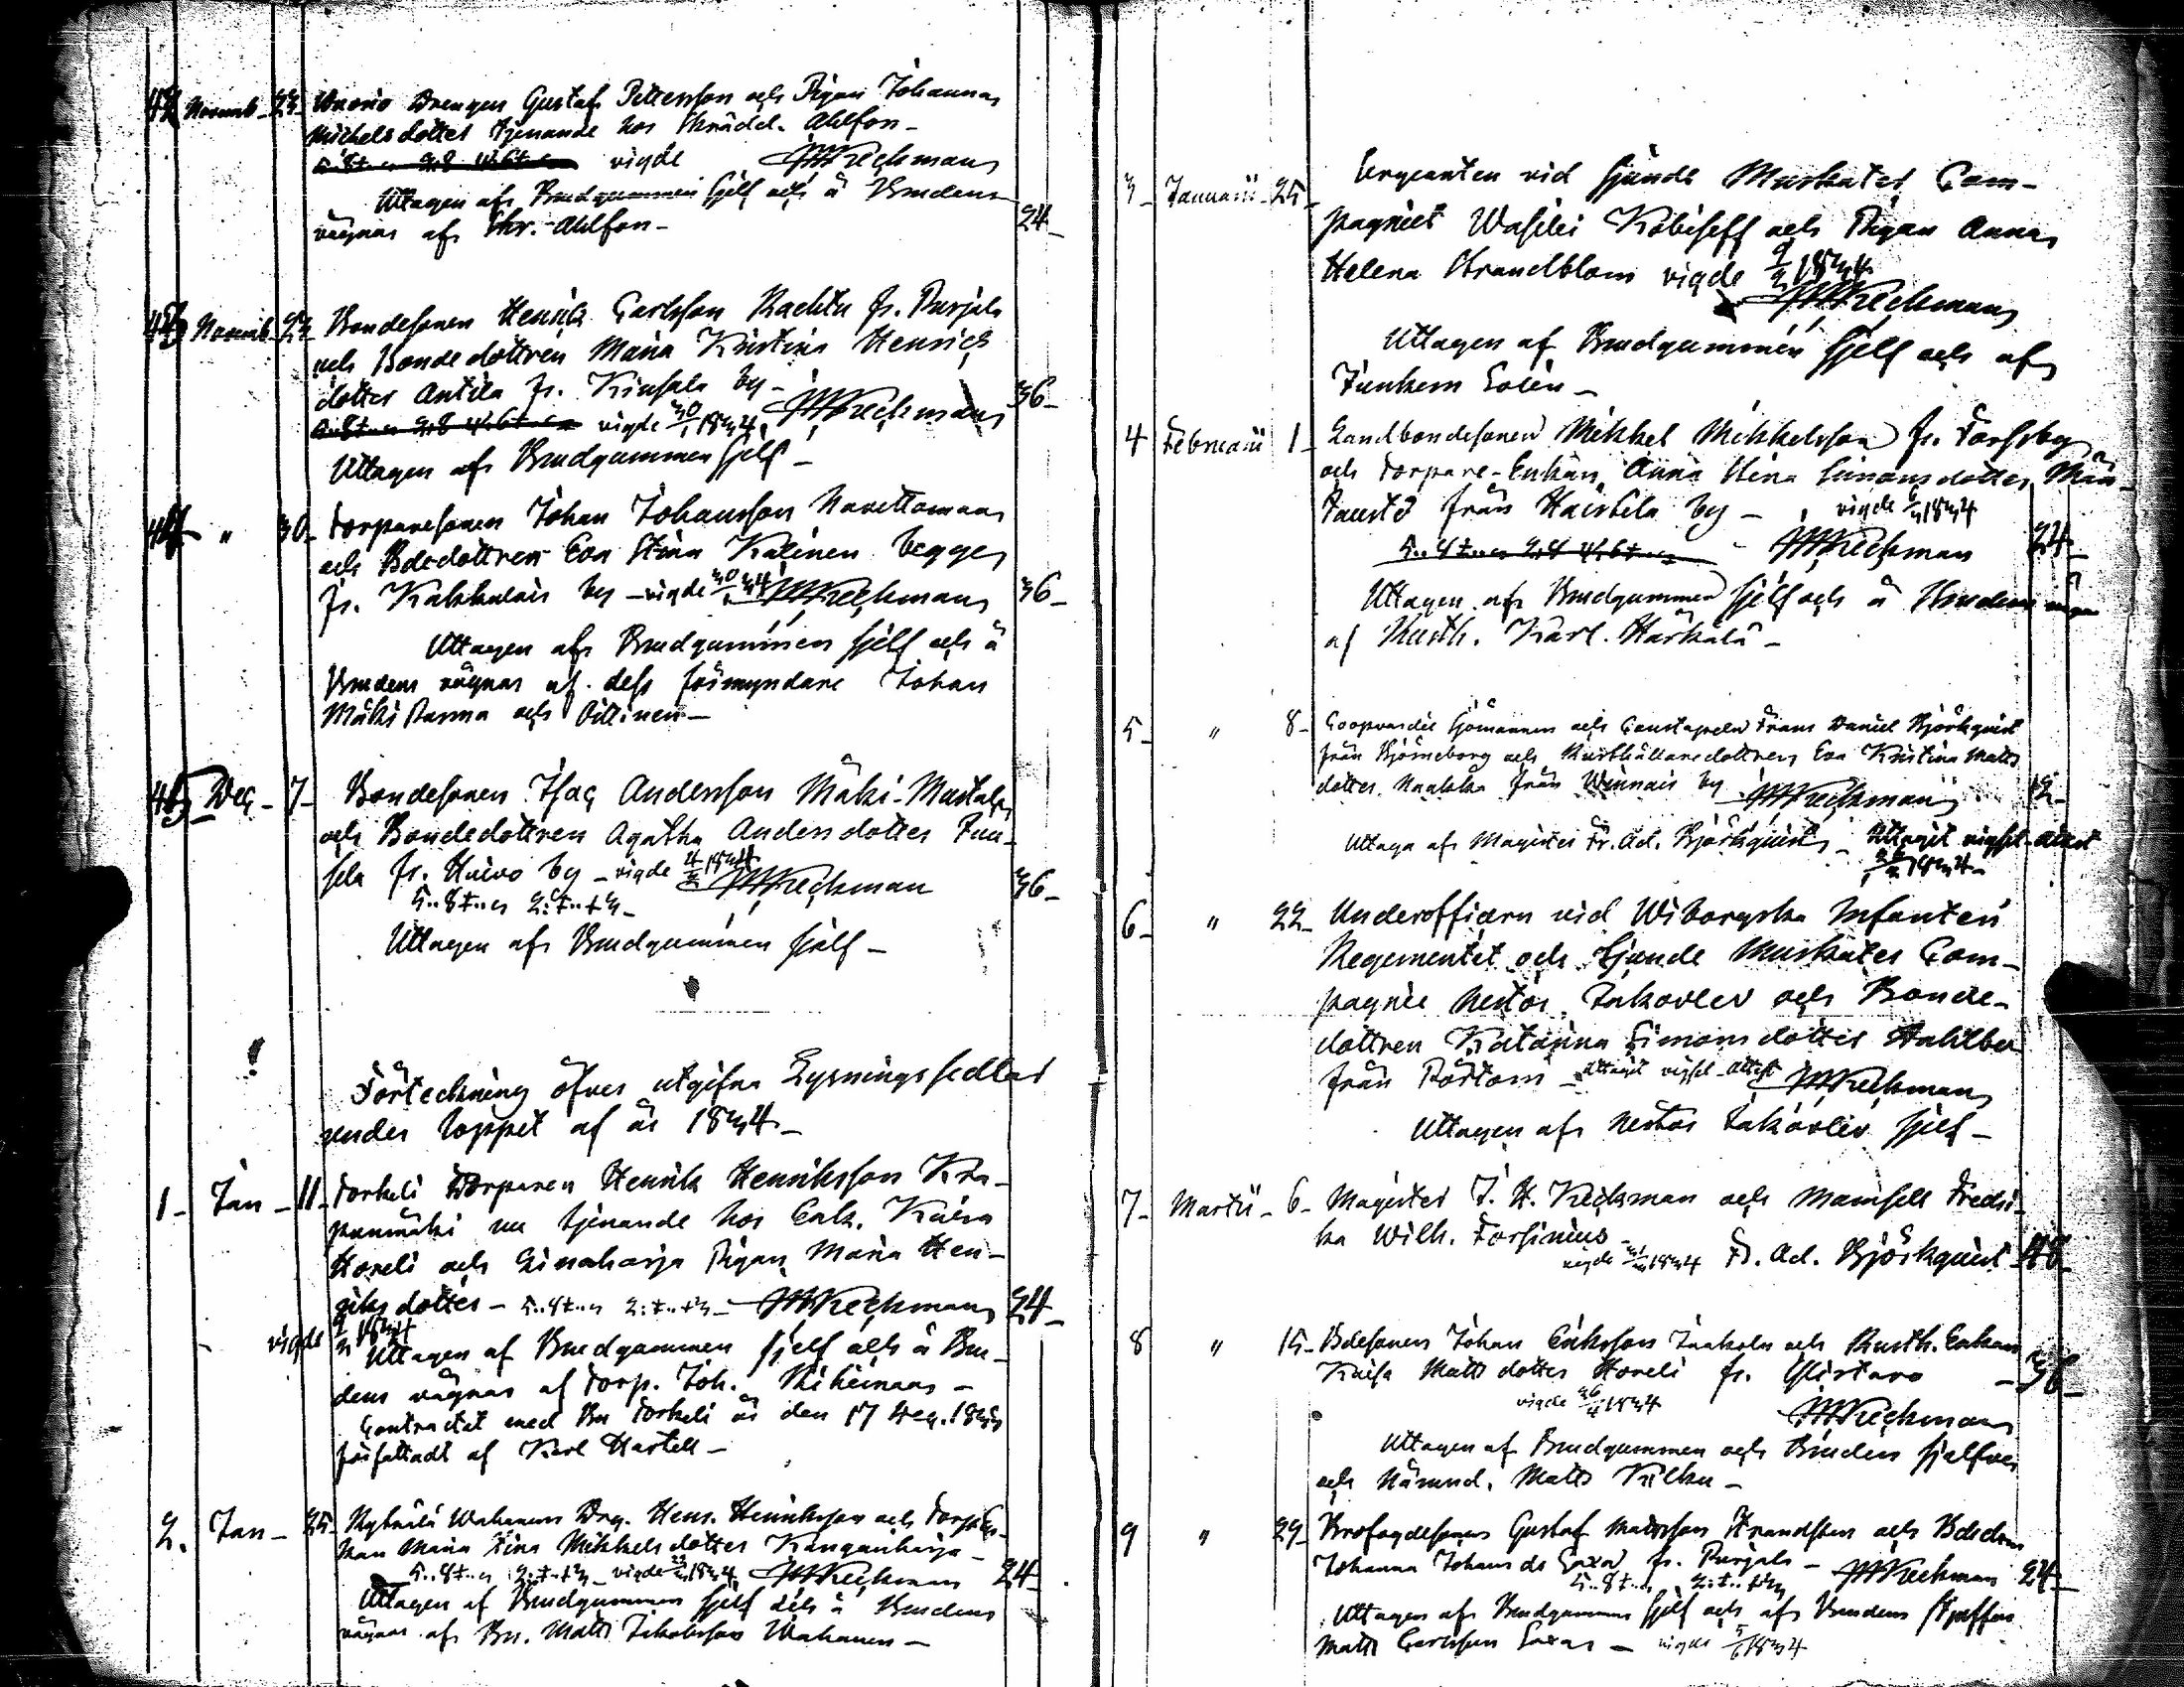 42 Novemb. 23 Drengen Gustaf Pettersson och Pigan Johanna
Michelsdotter tjenande hos Skrädd. Ahlfon -
vigde JHKeckman
Uttagen af Brudgummen sjelf och å Brudens
vägnar af Skr. Ahlfon - 24 -
43 Novemb. 23 Bondesonen Henrik Carlsson Rachtu fr. Purjala
och Bondedottren Maria Kristina Henrics
dotter Antila fr. by - 36 -
vigde 30/1 1834. JHKeckman
Uttagen af Brudgummen sjelf -
44 " 30 - Torparesonen Johan Johansson
och Bdedottren Eva Stina Kalinen begge
fr. Kakkalais by - vigde 30/1 34 JHKeckman 36 -
Uttagen af Brudgummen sjelf och å
Brudens vägnar af dess förmyndare Johan
Mäki och
45 Dec - 7 - Bondesonen Isac Andersson Mäki-Mattala
och Bondedottren Agatha Andersdotter Juu-
sela fr. by - vigde 4/2 1834 JHKeckman 36 -
5..8t..n 2:t..t3 -
Uttagen af Brudgummen sjelf -
Förteckning öfver utgifna Lysningssedlar
under loppet af år 1834 -
1 - Jan - 11 - Torkeli Torparen Henrik Henriksson
nu tjenande hos Enk. Kaisa
Horeli och Pigan Maria Hen-
riksdotter - 5..4t..n 2:t..t3 - JHKeckman 24 -
vigde 9/2 1834
Uttagen af Brudgummen sjelf och å Bru-
dens vägnar af Torp. Joh.
Contractet med Bn Torkeli är den 17 Dec. 1833
författadt af Karl Hartell -
2. Jan - 25 - Wahanen Drg. Henr. Henriksson och Torp.En-
kan Maria Stina Mikkelsdotter Kanganharja -
5..8t..n 2:t..t3 - vigde 1834 JHKeckman 24 -
Uttagen af Brudgummen sjelf och å Brudens
vägnar af Bn. Matts Jakobsson Wahanen -
3 - Januarii - 25 - Sergeanten vid sjunde Muskater Com-
pagniet Wasilei Kobiseff och Pigan Anna
Helena Strandblom vigde 9/2 1834
JHKeckman
Uttagen af Brudgummen sjelf och af
Junkern Colin -
4 Februarii 1 - Landbondesonen Mikkel Mikkelsson fr. Forssby
och Torpare-Enkan Anna Stina Simonsdotter
från Haistila by - vigde 6/3 1834
JHKeckman 24 -
Uttagen af Brudgummen sjelf och å Brudens vägnar
af Rusth. Karl Härkälä -
5 - " 8 - Coopvardie Sjömannen och Constapeln Frans Daniel Björkquist
från Björneborg och Rusthållaredottren Eva Kristina Matts
dotter Naakka från Winnais by JHKeckman
Uttaga af Magister Fr. Ad. Björkquist - Uttagit vigsel-attest
1834 -
6 - " 22 - Underofficern vid Wiborgska Infanteri
Regementet och sjunde Muskater Com-
pagnie Nestor Jakovlev och Bonde-
dottren Katarina Simonsdotter
från - Uttagit vigsel-attest JHKeckman
Uttagen af Nestor Jakovlev sjelf -
7 - Martii - 6 - Magister J. H. Keckman och Mamsell Fredri-
ka Wilh. Forsinius -
vigde 1834 Fr. Ad. Björkquist 48 -
8 " 15 - Bdesonen Johan Eriksson Jaakola och Rusth. Enkan
Kaisa Mattsdotter Horeli fr. Ylistaro - 36 -
vigde 26/4 1834
JHKeckman
Uttagen af Brudgummen och Bruden sjelfve
och Nämnd. Matts Kilku -
9 " 29 - Brofogdesonen Gustaf Mattsson Strandsten och Bdedn
Johanna Johans dr Saxa fr. Purjala - JHKeckman 24 -
5..8t..n 2:t..t3
Uttagen af Brudgummen sjelf och af Brudens styffar
Matts Carlsson Saxa - vigde 5/6 1834